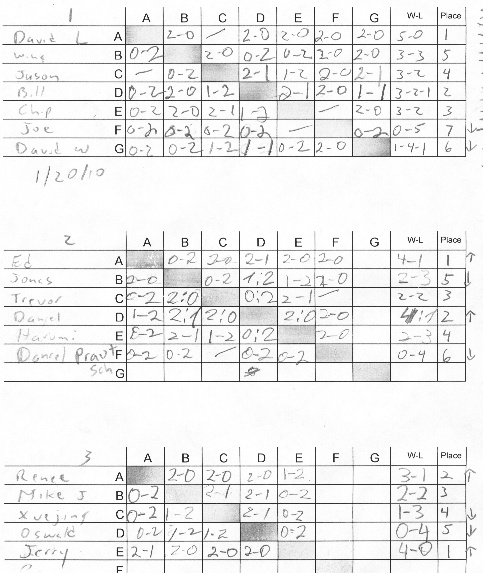 1 A B C D E F G W-L Place
David L A 2-0 / 2-0 2-0 2-0 2-0 5-0 1
B 0-2 2-0 0-2 0-2 2-0 2-0 3-3 5
Jason C - 0-2 2-1 1-2 2-0 2-1 3-2 4
Bill D 0-2 2-0 1-2 2-1 2-0 1-1 3-2-1 2
Chip E 0-2 2-0 2-1 1-2 / 2-0 3-2 3
Joe F 0-2 0-2 0-2 0-2 - 0-2 0-5 7 ↓
David W G 0-2 0-2 1-2 1-1 0-2 2-0 1-4-1 6 ↓
1/20/10
2 A B C D E F G W-L Place
Ed A 0-2 2-0 2-1 2-0 2-0 4-1 1 ↑
Jones B 2-0 0-2 1:2 1-2 2-0 2-3 5 ↓
Trevor C 0-2 2:0 0:2 2-1 - 2-2 3
Daniel D 1-2 2:1 2:0 2:0 2-0 4:1 2 ↑
Harumi E 0-2 2-1 1-2 0:2 2-0 2-3 4
Daniel F 0-2 0-2 / 0-2 0-2 0-4 6 ↓
Sch G
3 A B C D E F G W-L Place
Renee A 2-0 2-0 2-0 1-2 3-1 2 ↑
Mike J B 0-2 2-1 2-1 0-2 2-2 3
Xuejing C 0-2 1-2 2-1 0-2 1-3 4 ↓
Oswald D 0-2 1-2 1-2 0-2 0-4 5 ↓
Jerry E 2-1 2-0 2-0 2-0 4-0 1 ↑
F